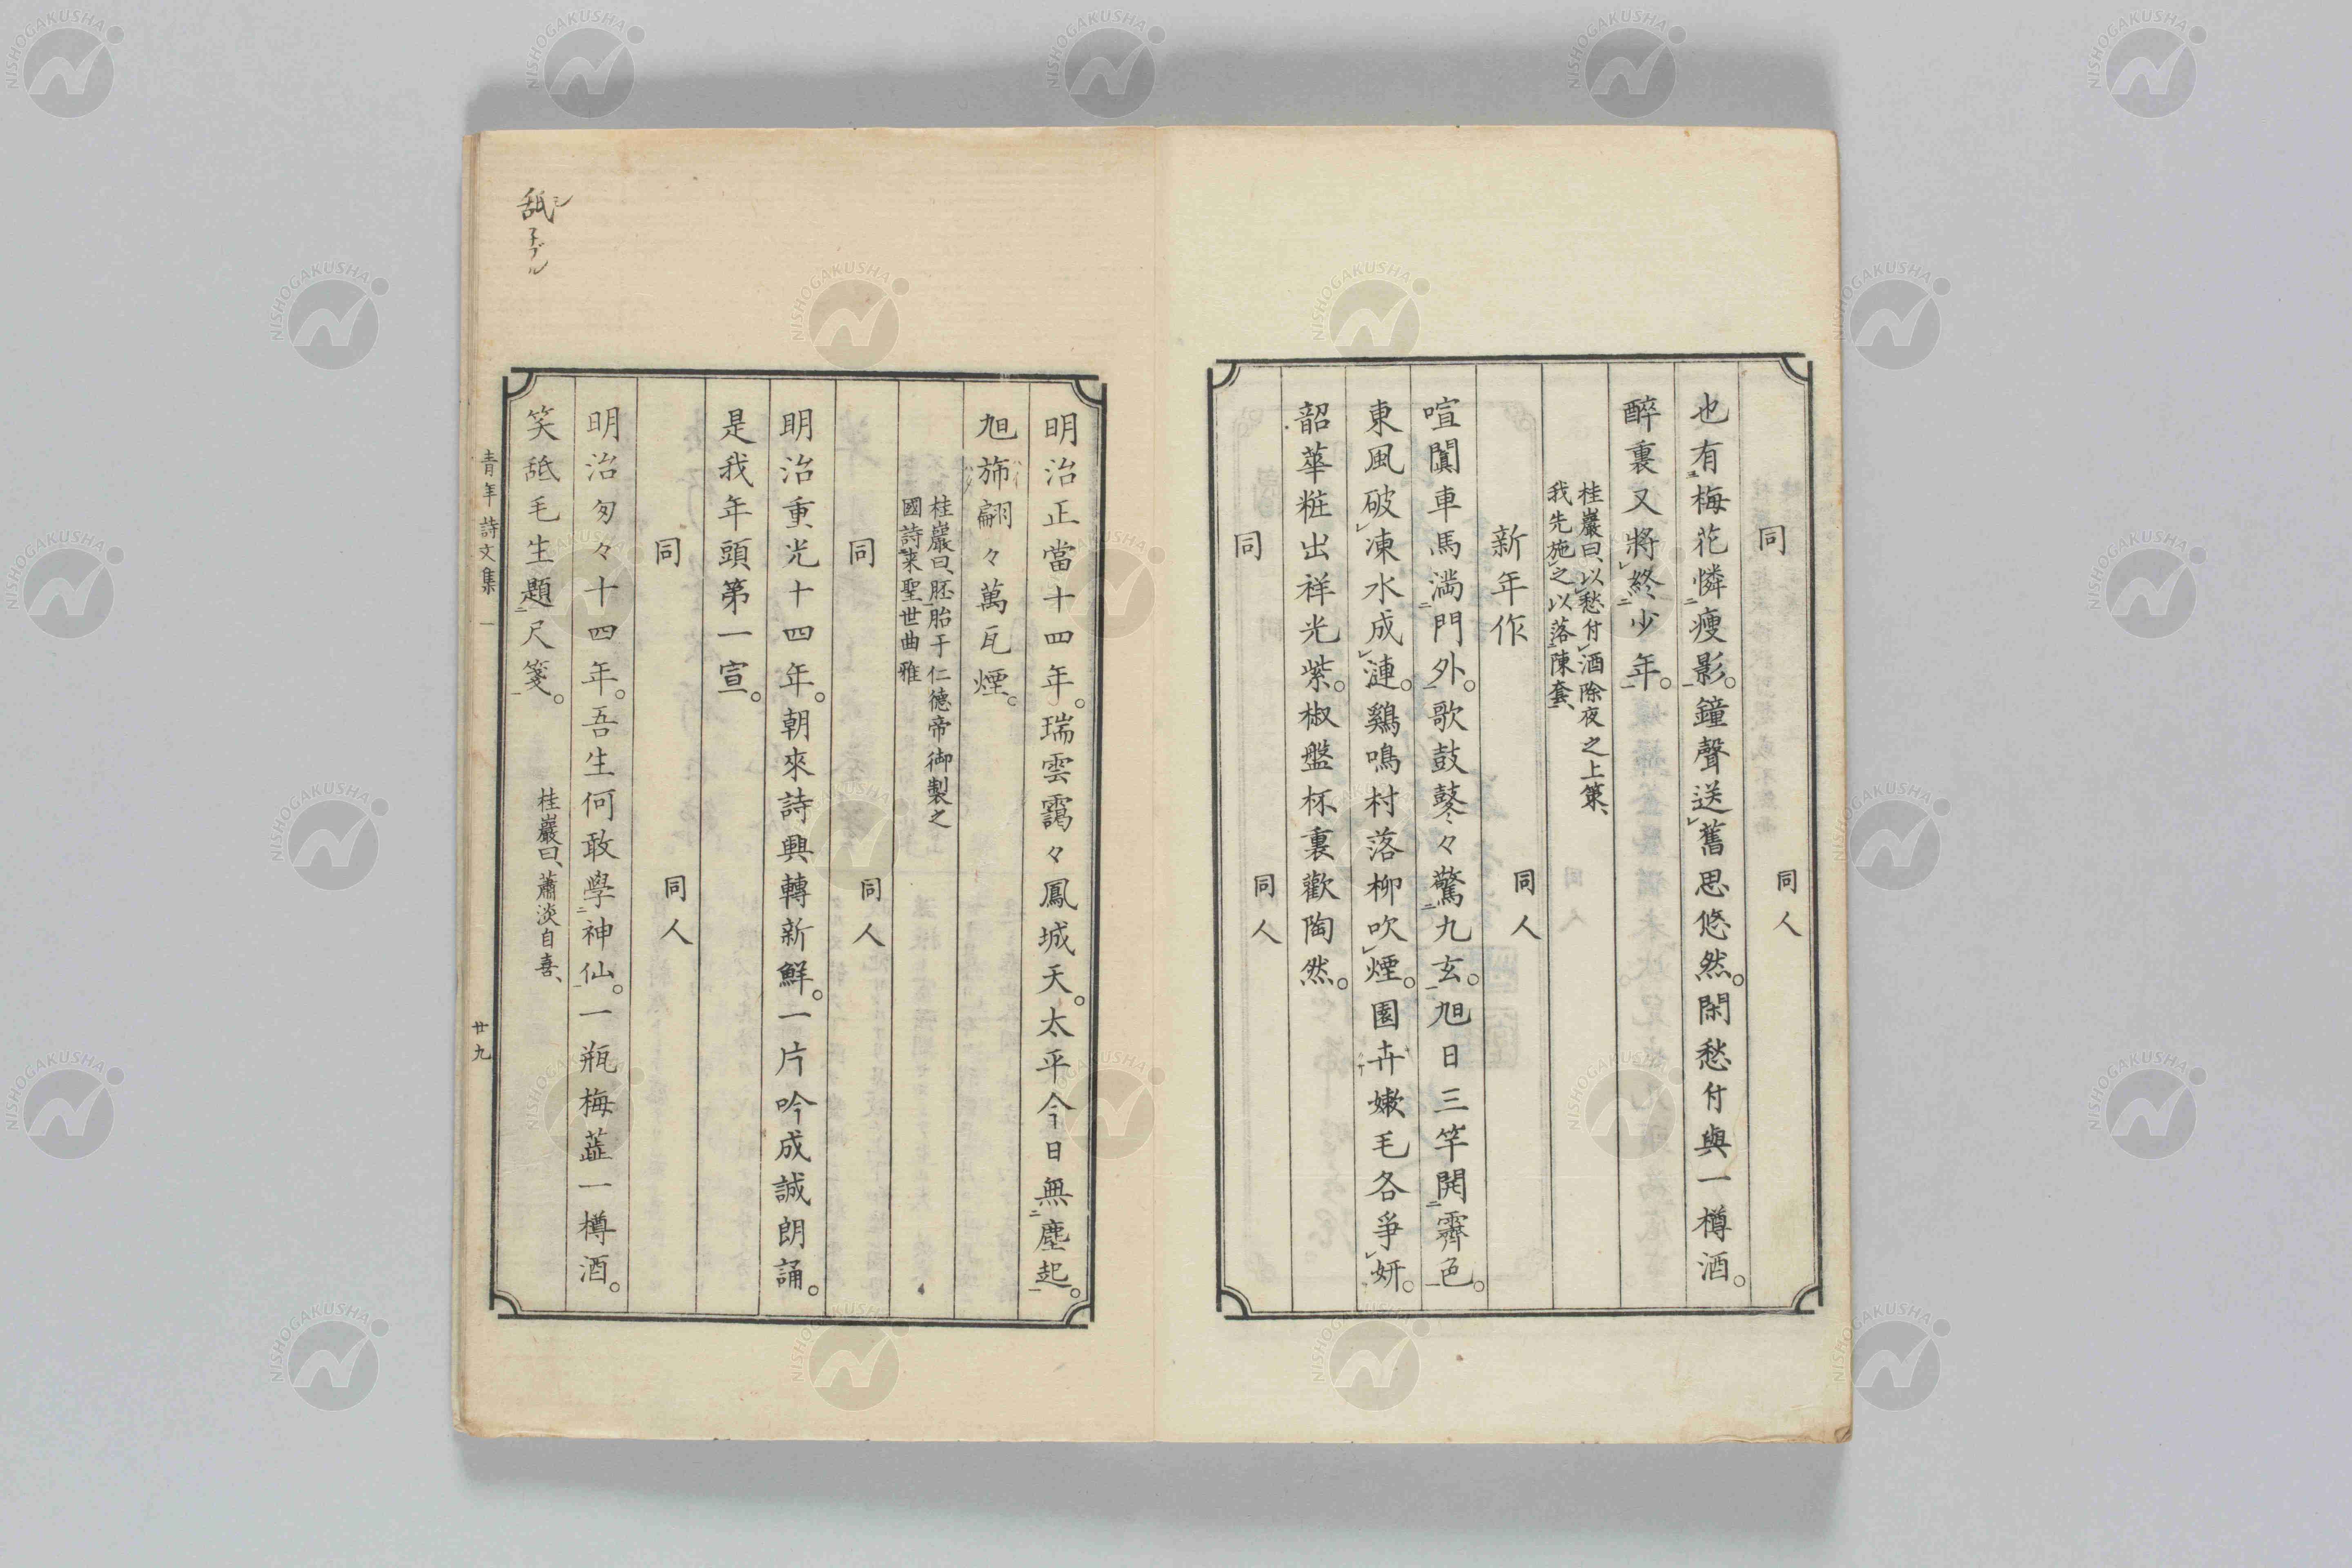 同　同人
也有梅花憐瘦影。鐘聲送舊思悠然。閑愁付與一樽酒。
醉裏又將終少年。
桂巖曰、以愁付酒除夜之上策、
我先施之以落陳套、
新年作　同人
喧闐車馬満門外。歌鼓鼕々驚九玄。旭日三竿開霽色。
東風破凍水成漣。鷄鳴村落柳吹煙。園卉嫩毛各爭妍。
韶華粧出祥光紫。椒盤杯裏歡陶然。
同　同人
明治正當十四年。瑞雲靄々鳳城天。太平今日無塵起。
旭斾翩々萬瓦煙。
桂巖曰、胚胎于仁德帝御製之
國詩来聖世曲雅
同　同人
明治重光十四年。朝來詩興轉新鮮。一片吟成誠朗誦。
是我年頭第一宣。
同　同人
明治匆々十四年。吾生何敢學神仙。一瓶梅蕋一樽酒。
笑舐毛生題尺箋。　桂巖曰、蕭淡自喜、
青年詩文集　一　廿九
舐シ
子ブル
NISHOGAKUSHA